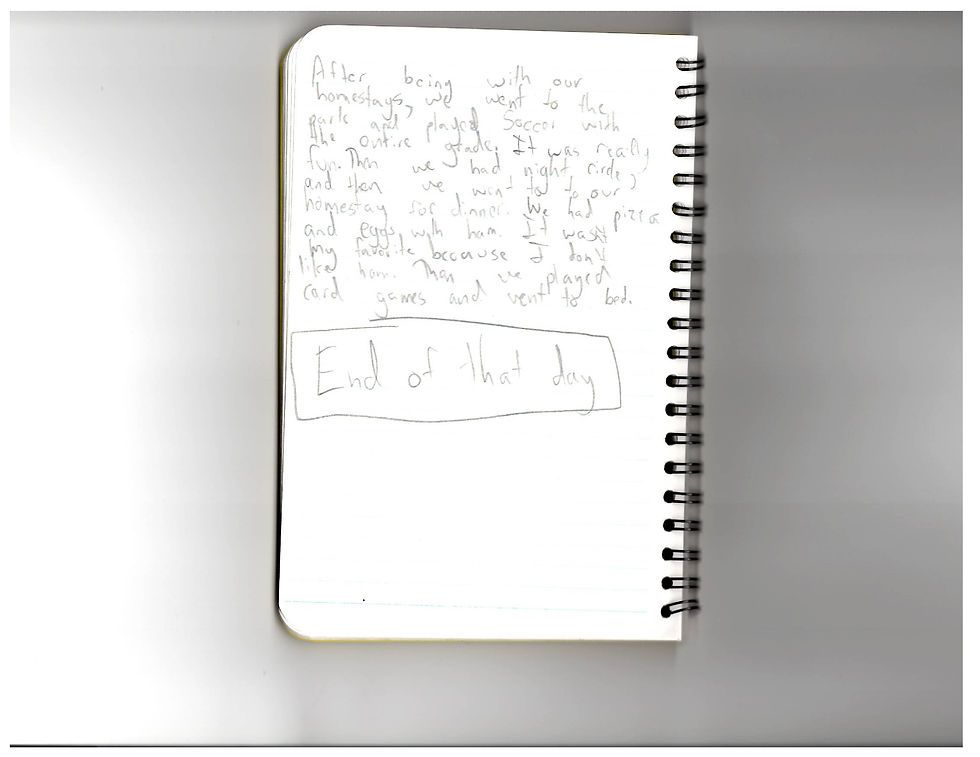 After being with our
homestays, we went to the
park and played Soccer with
the entire grade. It was really
fun. Then we had night circle,
and then we went to to our
homestay for dinner. We had pizza
and eggs with ham. It wasn't
my favorite because I don't
like ham. Then we played
card games and went to bed.
End of that day